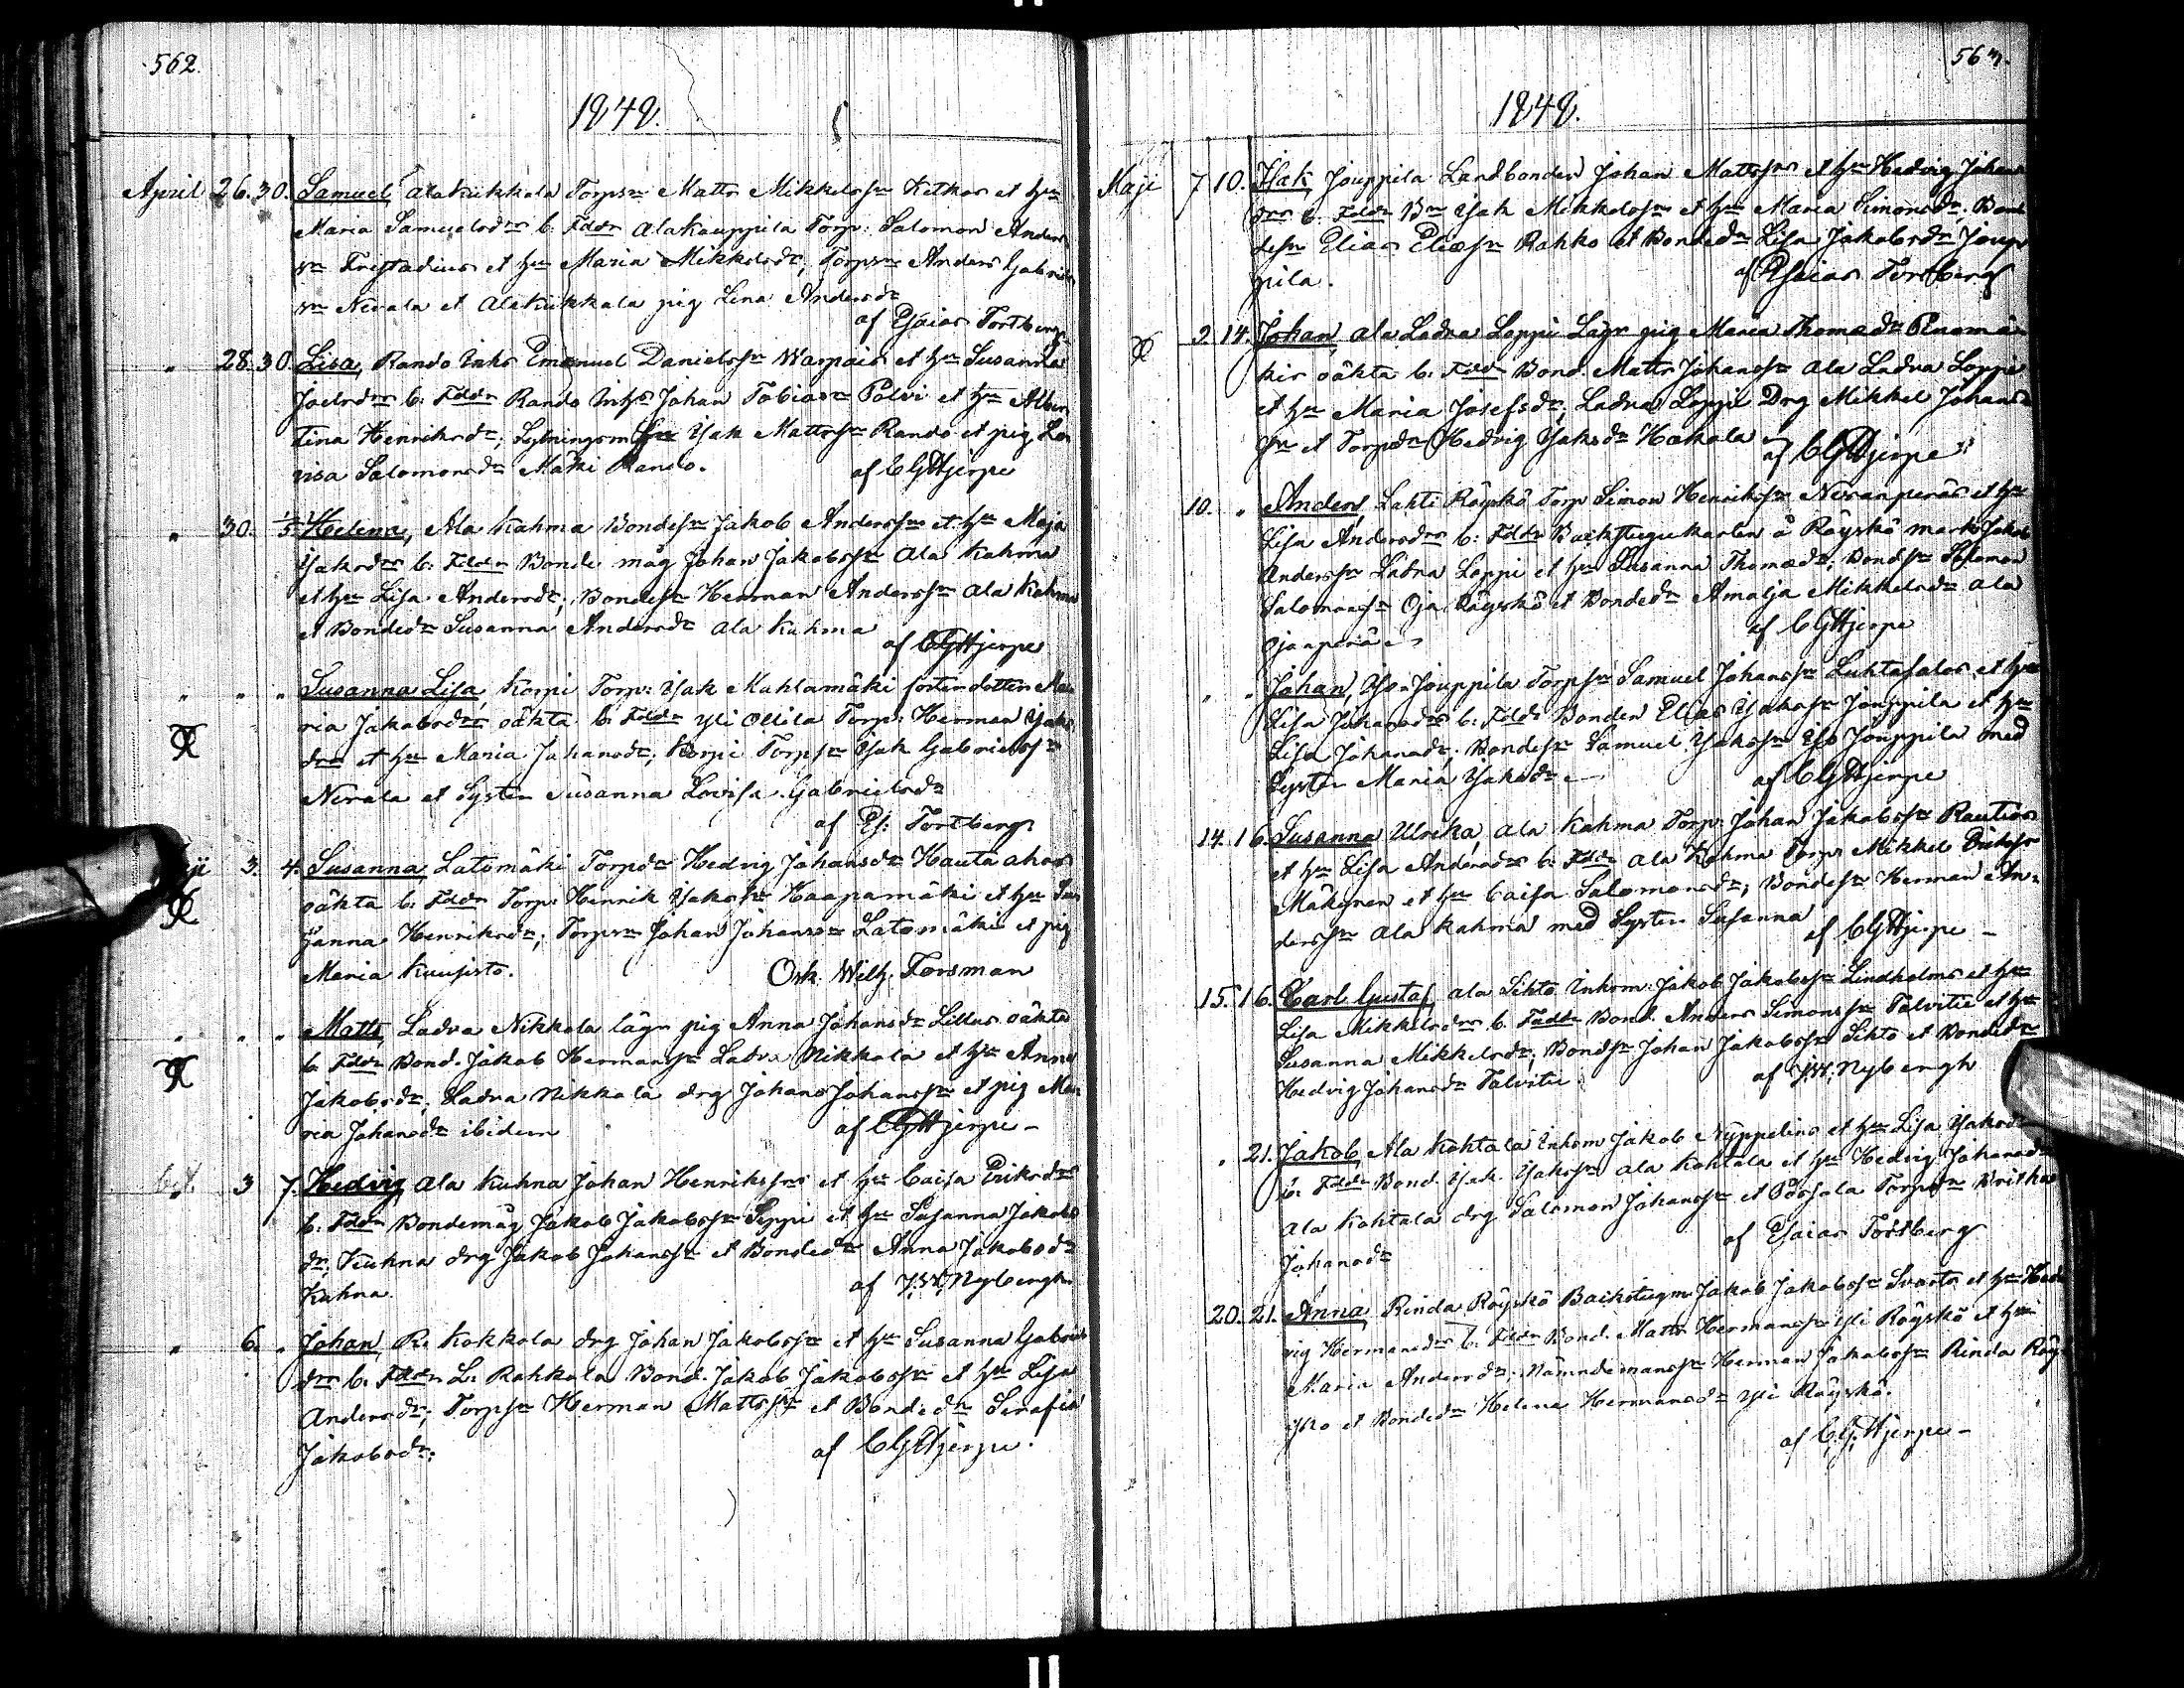 562.
1848.
April 26. 30. Samuel, Alakukkola Torpsn Matts Mikkelssn Ketkos et hu
Maria Samuelsdrs b. Fddr Alakauppila Torp. Salomon Anders
sn et hu Maria Mikkelsdr, Torpsn Anders Gabriels
sn Nevala et Alakukkala pig Lena Andersdr
af Esaias Tortberg
" 28. 30. Lisa, Rando Inhs Emanuel Danielssn Warpais et hu Susanna
Joelsdrs b. Fddr Rando Inhs Johan Tobiassn Polvi et hu Alber
tina Henriksdr; Lytningsm Isak Mattssn Rando et pig Lo
visa Salomonsdr Mäki Rando.
af CGHjerpe
" 30. 1/5 Helena, Ala Kahma Bondesn Jakob Anderssns et hu Maja
Isaksdrs b. Fddr Bonde måg Johan Jakobssn Ala Kahma
et hu Lisa Andersdr; Bondesn Herman Anderssn Ala Kahma
et Bondedr Susanna Andersdr Ala Kahma
af CGHjerpe
" " " Susanna Lisa, Korpi Torp: Isak Mahlamäki fosterdotter Ma
ria Jakobsdrs oäkta b. Fddr Yli Ollila Torp: Herman Isaks
et hu Maria Johansdr; Korpi Torpsn Isak Gabrielssn
Nevala et Syster Susanna Lovisa Gabrielsdr
af Es: Tortberg
Maji 3. 4. Susanna, Latomäki Torpdr Hedvig Johansdr Hauta ahos
oäkta b. Fddr Torp: Henrik Isakssn Haapamäki et hu Su
sanna Henriksdr; Torpsn Johan Johanssn Latomäki et pig
Maria Kuusisto.
Osk. Wilh. Forsman
" " " Matts, Ladva Nikkola lägr pig Anna Johansdr Lillus oäkta
b. Fddr Bond. Jakob Hermanssn Ladva Nikkala et hu Anna
Jakobsdr; Ladva Nikkala drg Johan Johanssn et pig Ma
ria Johansdr ibidem
af CGHjerpe
3 7. Hedvig, Ala Kuhna Johan Henrikssns et hu Caisa Eriksdrs
b. Fddr Bondemåg Jakob Jakobssn Seppi et hu Susanna Jakobs
dr, Kuhna drg Jakob Johanssn et Bondedr Anna Jakobsdr
Kuhna.
af J.W. Nybergh
" 6. " Johan, R. Kokkola drg Johan Jakobssn et hu Susanna Gabriels
drs b. Fddr L. Rahkola Bond. Jakob Jakobssn et hu Lisa
Andersdr; Torpsn Herman Mattssn et Bondedr Serafia
Jakobsdr.
af CGHjerpe.
563.
1848.
Maji 7. 10. Isak, Jouppila Landbonden Johan Mattssns et hu Hedvig Johans
drs b. Fddr Bn Isak Mikkelssn et hu Maria Simonsdr, Bon
desn Elias Eliæsn Rahko et Bondedr Lisa Jakobsdr Joup
pila.
af Esaias Tortberg
9. 14. Johan, Ala Ladva Loppi Lägr pig Maria Thomædr Ruomä
kis oäkta b. Fddr Bond. Matts Johanssn Ala Ladva Loppi
et hu Maria Josefsdr; Ladva Loppi Drg Mikkel Johans
sn et Torpdr Hedvig Isaksdr Hakala
af CGHjerpe
10. " Anders, Lahti Röyskö Torp Simon Henrikssn Nevanperäs et hu
Lisa Andersdrs b: Fddr Backstugukarlen å Röyskö mark Jakob
Anderssn Ladva Loppi et hu Susanna Thomædr; Bondsn Salomon
Salomonssn Oja Röyskö et Bondedr Amalja Mikkelsdr Ala
Ojanperä
af CGHjerpe
" " Johan, Iso-Jouppila Torpsn Samuel Johanssn Luhtasalos et hu
Lisa Johansdrs b: Fddr Bonden Elias Isakssn Jouppila et hu
Lisa Johansdr; Bondesn Samuel Isakssn Iso Jouppila med
Syster Maria Isaksdr
af CGHjerpe
14. 16. Susanna Ulrika, Ala Kahma Torp: Johan Jakobssn Rautios
et hu Lisa Andersdrs b. Fddr Ala Kahma Torp: Mikkel Erikssn
Mäkynen et hu Caisa Salomonsdr; Bondesn Herman An
derssn Ala Kahma med Syster Susanna
af CGHjerpe
15. 16. Carl Gustaf, Ala Sihto Inhom: Jakob Jakobssn Lindholms et hu
Lisa Mikkelsdrs b. Fddr Bond. Anders Simonssn Talvitie et hu
Susanna Mikkelsdr; Bondsn Johan Jakobssn Sihto et Bondedr
Hedvig Johansdr Talvitie
af J.W. Nybergh
" 21. Jakob, Ala Kohtala Inhom Jakob Nyppelins et hu Lisa Isaksdrs
b. Fddr Bond. Isak Isakssn Ala Kohtala et hu Hedvig Johansdr
Ala Kohtala drg Salomon Johanssn et Torpdr Britha
Johansdr
af Esaias Tortberg
20. 21. Anna, Rinda Röyskö Backstugm Jakob Jakobssn Svarts et hu Hed
vig Hermansdrs b. Fddr Bond. Matts Hermanssn Yli Röyskö et hu
Maria Andersdr; Nämndemanssn Herman Jakobssn Rinda Röy
skö et Bondedr Helena Hermansdr Yli Röyskö.
af C.G. Hjerpe